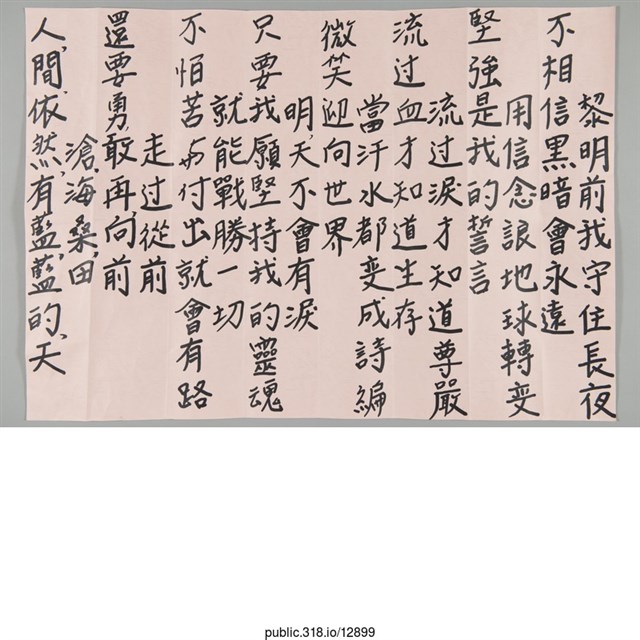 黎明前我守住長夜
不相信黑暗會永遠
用信念讓地球轉变
堅強是我的誓言
流过淚才知道尊嚴
流过血才知道生存
當汗水都变成詩編
微笑迎向世界
明天不會有淚
只要我願堅持我的靈魂
就能戰勝一切
不怕苦与付出就會有路
走过從前
還要勇敢再向前
滄海桑田
人間依然有藍藍的天
public.318.io/12899